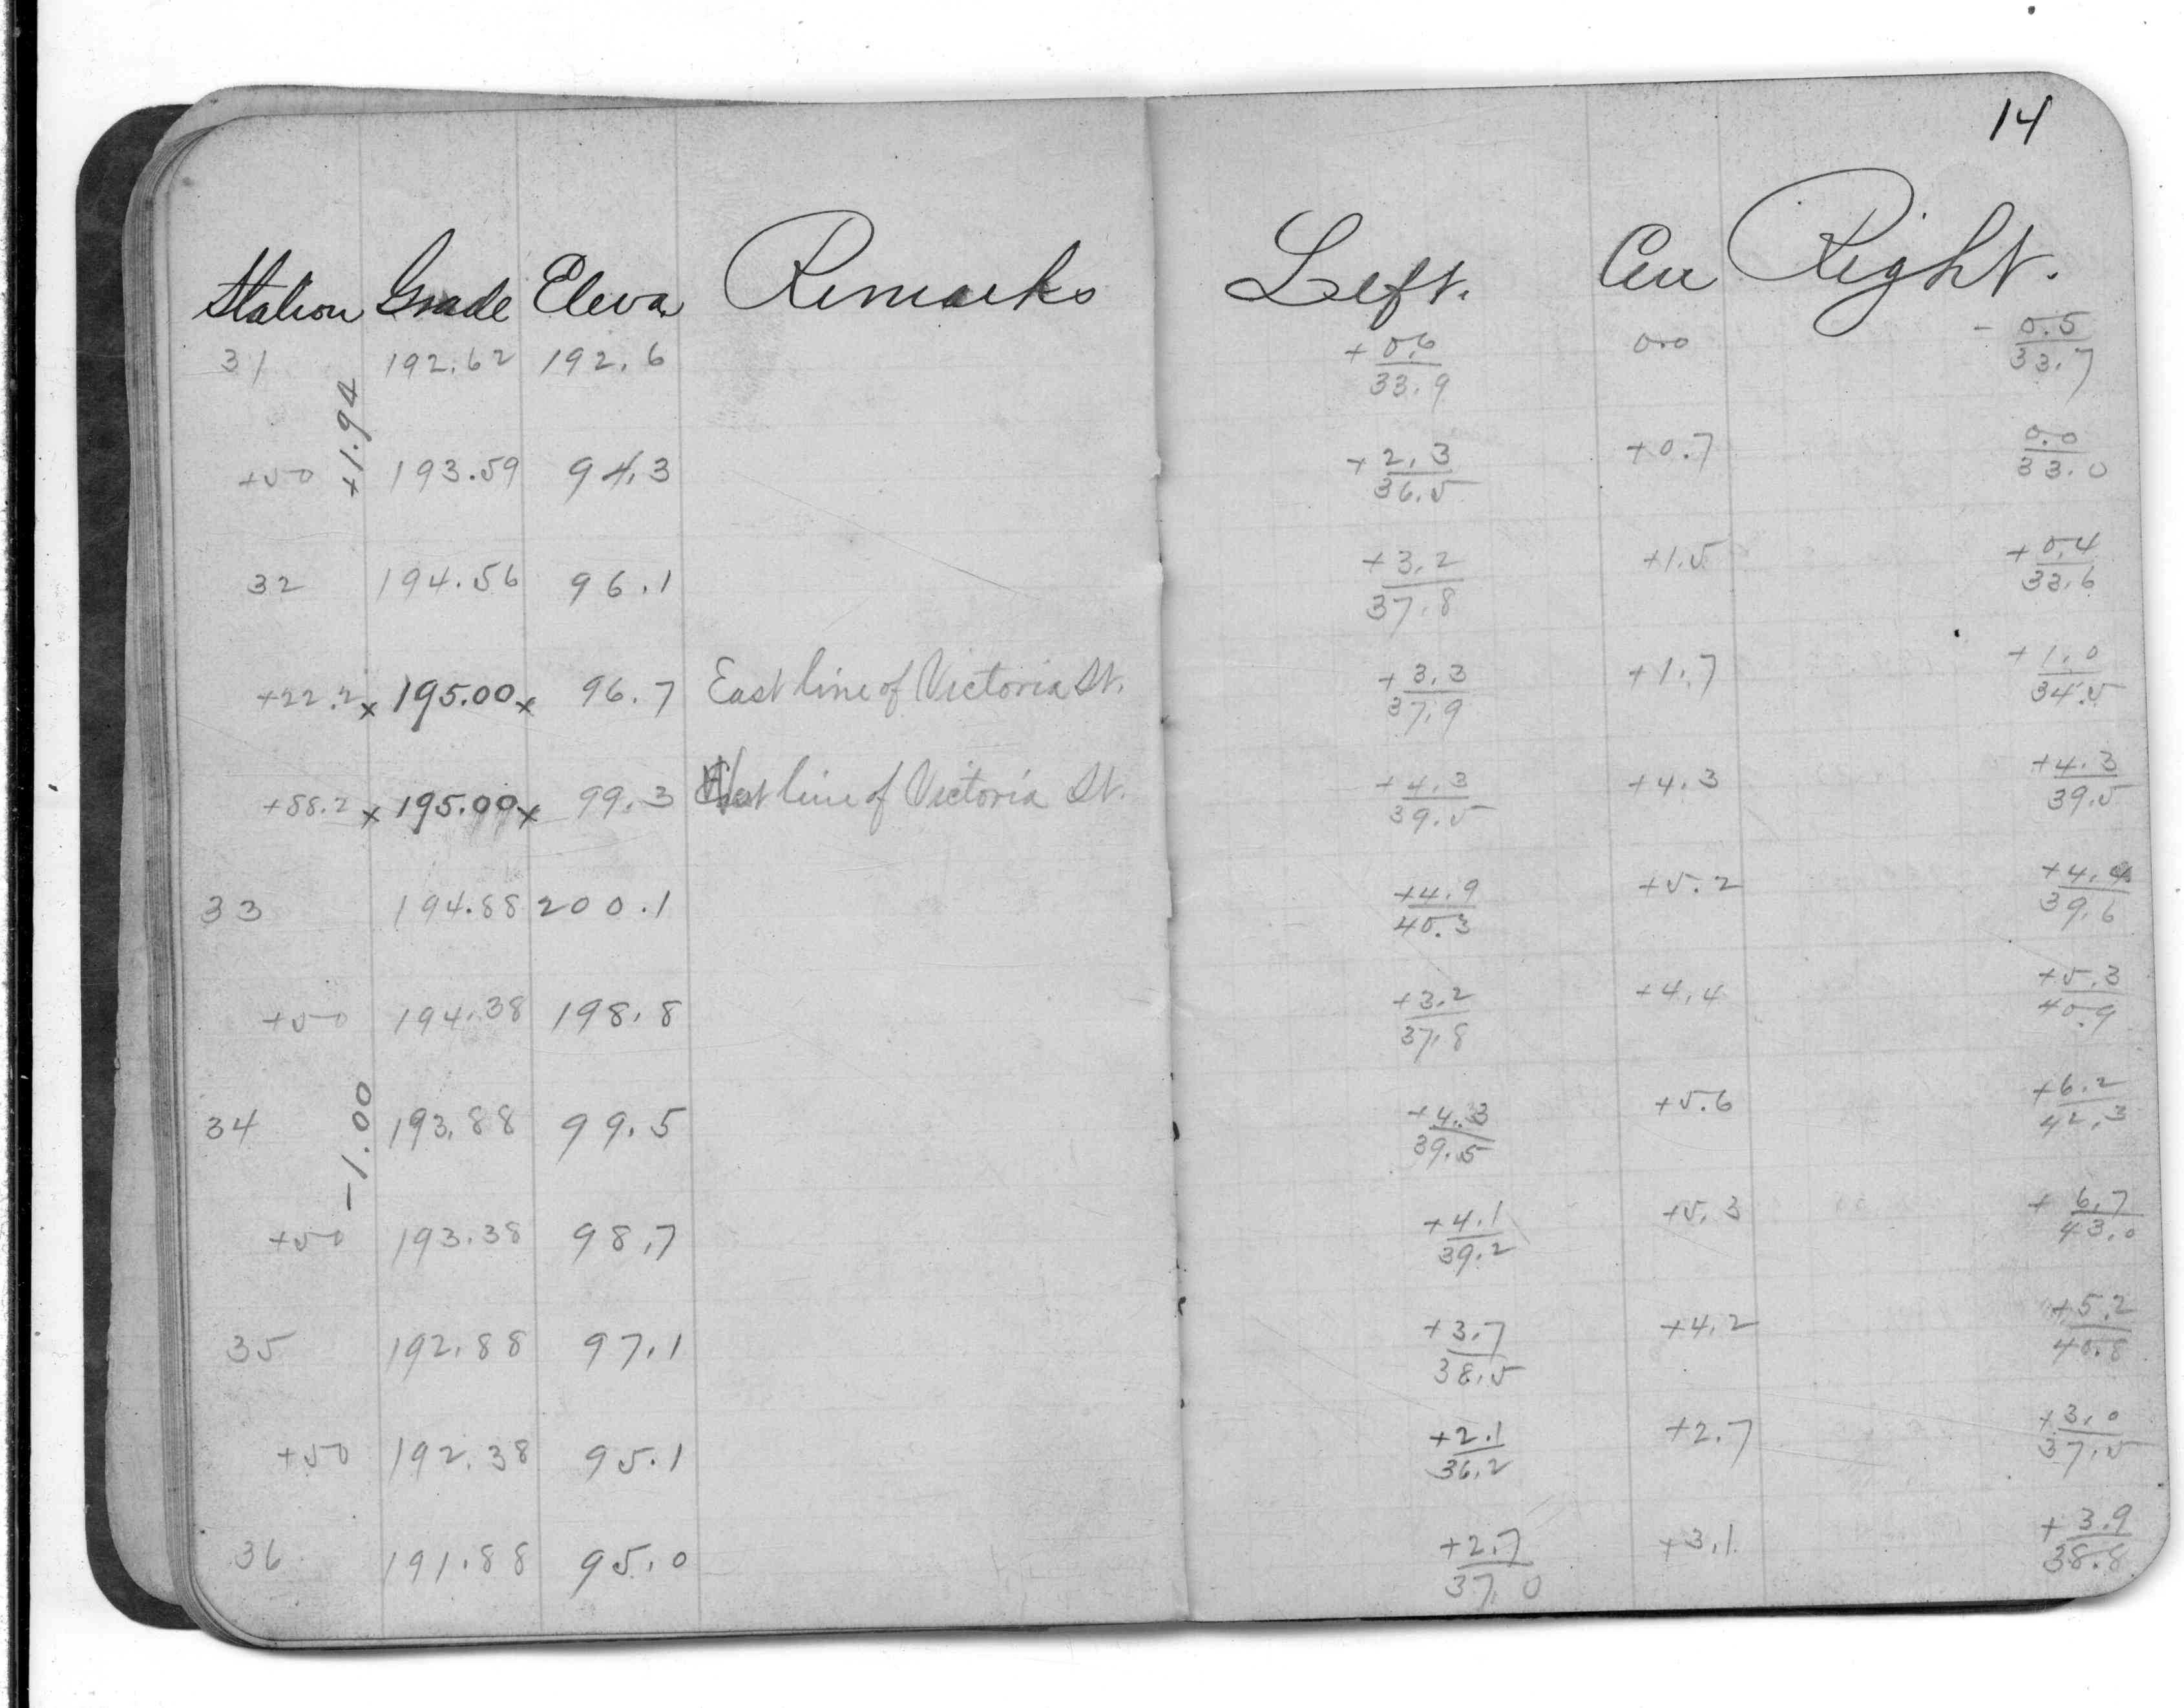 14
Station Grade Eleva. Remarks Left. Cen Right.
31 192.62 192.6 +0.6/33.9 0.0 -0.5/33.7
+1.94
+50 193.59 94.3 +2.3/36.5 +0.7 0.0/33.0
32 194.56 96.1 +3.2/37.8 +1.5 +0.4/33.6
+22.2 x 195.00 x 96.7 East line of Victoria St. +3.3/37.9 +1.7 +1.0/34.5
+88.2 x 195.00 x 99.3 West line of Victoria St. +4.3/39.5 +4.3 +4.3/39.5
33 194.88 200.1 +4.9/40.3 +5.2 +4.4/39.6
+50 194.38 198.8 +3.2/37.8 +4.4 +5.3/40.9
34 193.88 99.5 +4.3/39.5 +5.6 +6.2/42.3
-1.00
+50 193.38 98.7 +4.1/39.2 +5.3 +6.7/43.0
35 192.88 97.1 +3.7/38.5 +4.2 +5.2/40.8
+50 192.38 95.1 +2.1/36.2 +2.7 +3.0/37.5
36 191.88 95.0 +2.7/37.0 +3.1 +3.9/38.8